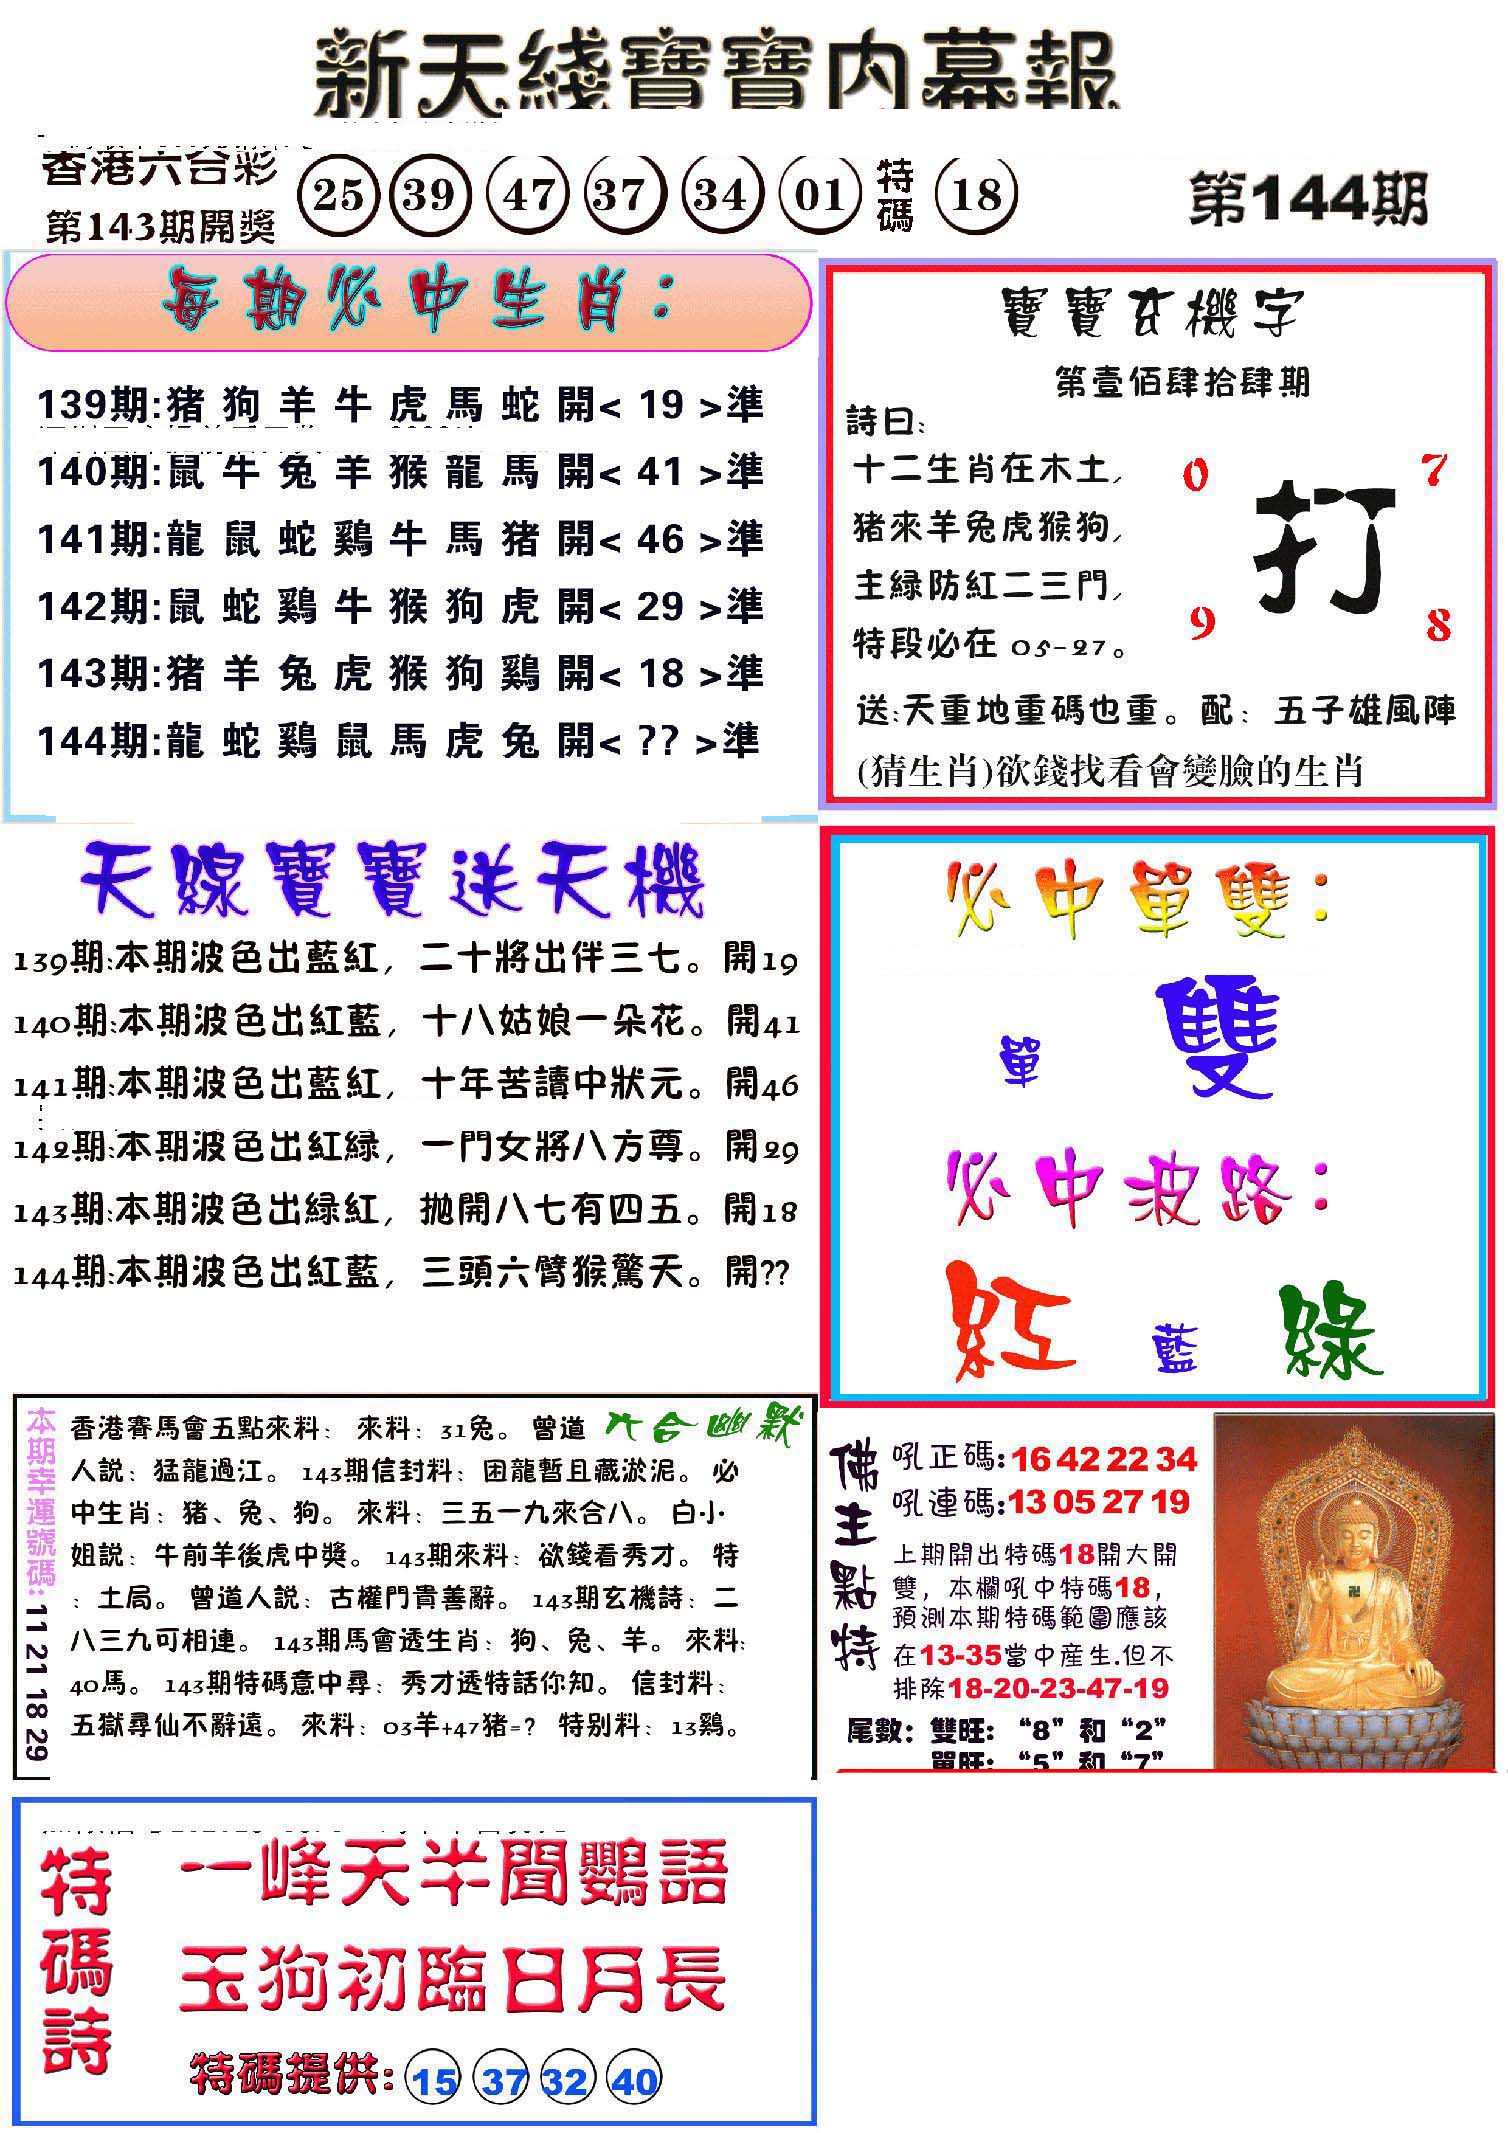 新天綫寶寶内幕報
香港六合彩
第143期開獎
25 39 47 37 34 01 特碼 18
第144期
每期必中生肖：
139期:猪狗羊牛虎馬蛇開< 19 >準
140期:鼠牛兔羊猴龍馬開< 41 >準
141期:龍鼠蛇鷄牛馬猪開< 46 >準
142期:鼠蛇鷄牛猴狗虎開< 29 >準
143期:猪羊兔虎猴狗鷄開< 18 >準
144期:龍蛇鷄鼠馬虎兔開< ?? >準
寶寶玄機字
第壹佰肆拾肆期
詩曰:
十二生肖在木土,
猪來羊兔虎猴狗,
主緑防紅二三門,
特段必在 05-27。
0 7
打
9 8
送:天重地重碼也重。配：五子雄風陣
(猜生肖)欲錢找看會變臉的生肖
天線寶寶送天機
139期:本期波色出藍紅，二十將出伴三七。開19
140期:本期波色出紅藍，十八姑娘一朵花。開41
141期:本期波色出藍紅，十年苦讀中狀元。開46
142期:本期波色出紅緑，一門女將八方尊。開29
143期:本期波色出緑紅，抛開八七有四五。開18
144期:本期波色出紅藍，三頭六臂猴驚天。開??
必中單雙：
單 雙
必中波路：
紅 藍 綠
本期幸運號碼: 11 21 18 29
六合幽默
香港賽馬會五點來料：來料：31兔。曾道
人説：猛龍過江。143期信封料：困龍暫且藏淤泥。必
中生肖：猪、兔、狗。來料：三五一九來合八。白小
姐説：牛前羊後虎中獎。143期來料：欲錢看秀才。特
：土局。曾道人説：古權門貴善辭。143期玄機詩：二
八三九可相連。143期馬會透生肖：狗、兔、羊。來料:
40馬。143期特碼意中尋：秀才透特話你知。信封料：
五獄尋仙不辭遠。來料：03羊+47猪=? 特别料：13鷄。
佛主點特
吼正碼:16 42 22 34
吼連碼:13 05 27 19
上期開出特碼18開大開
雙，本欄吼中特碼18，
預測本期特碼範圍應該
在13-35當中産生.但不
排除18-20-23-47-19
尾數：雙旺：“8”和“2”
單旺：“5”和“7”
特碼詩
一峰天半聞鸚語
玉狗初臨日月長
特碼提供: 15 37 32 40